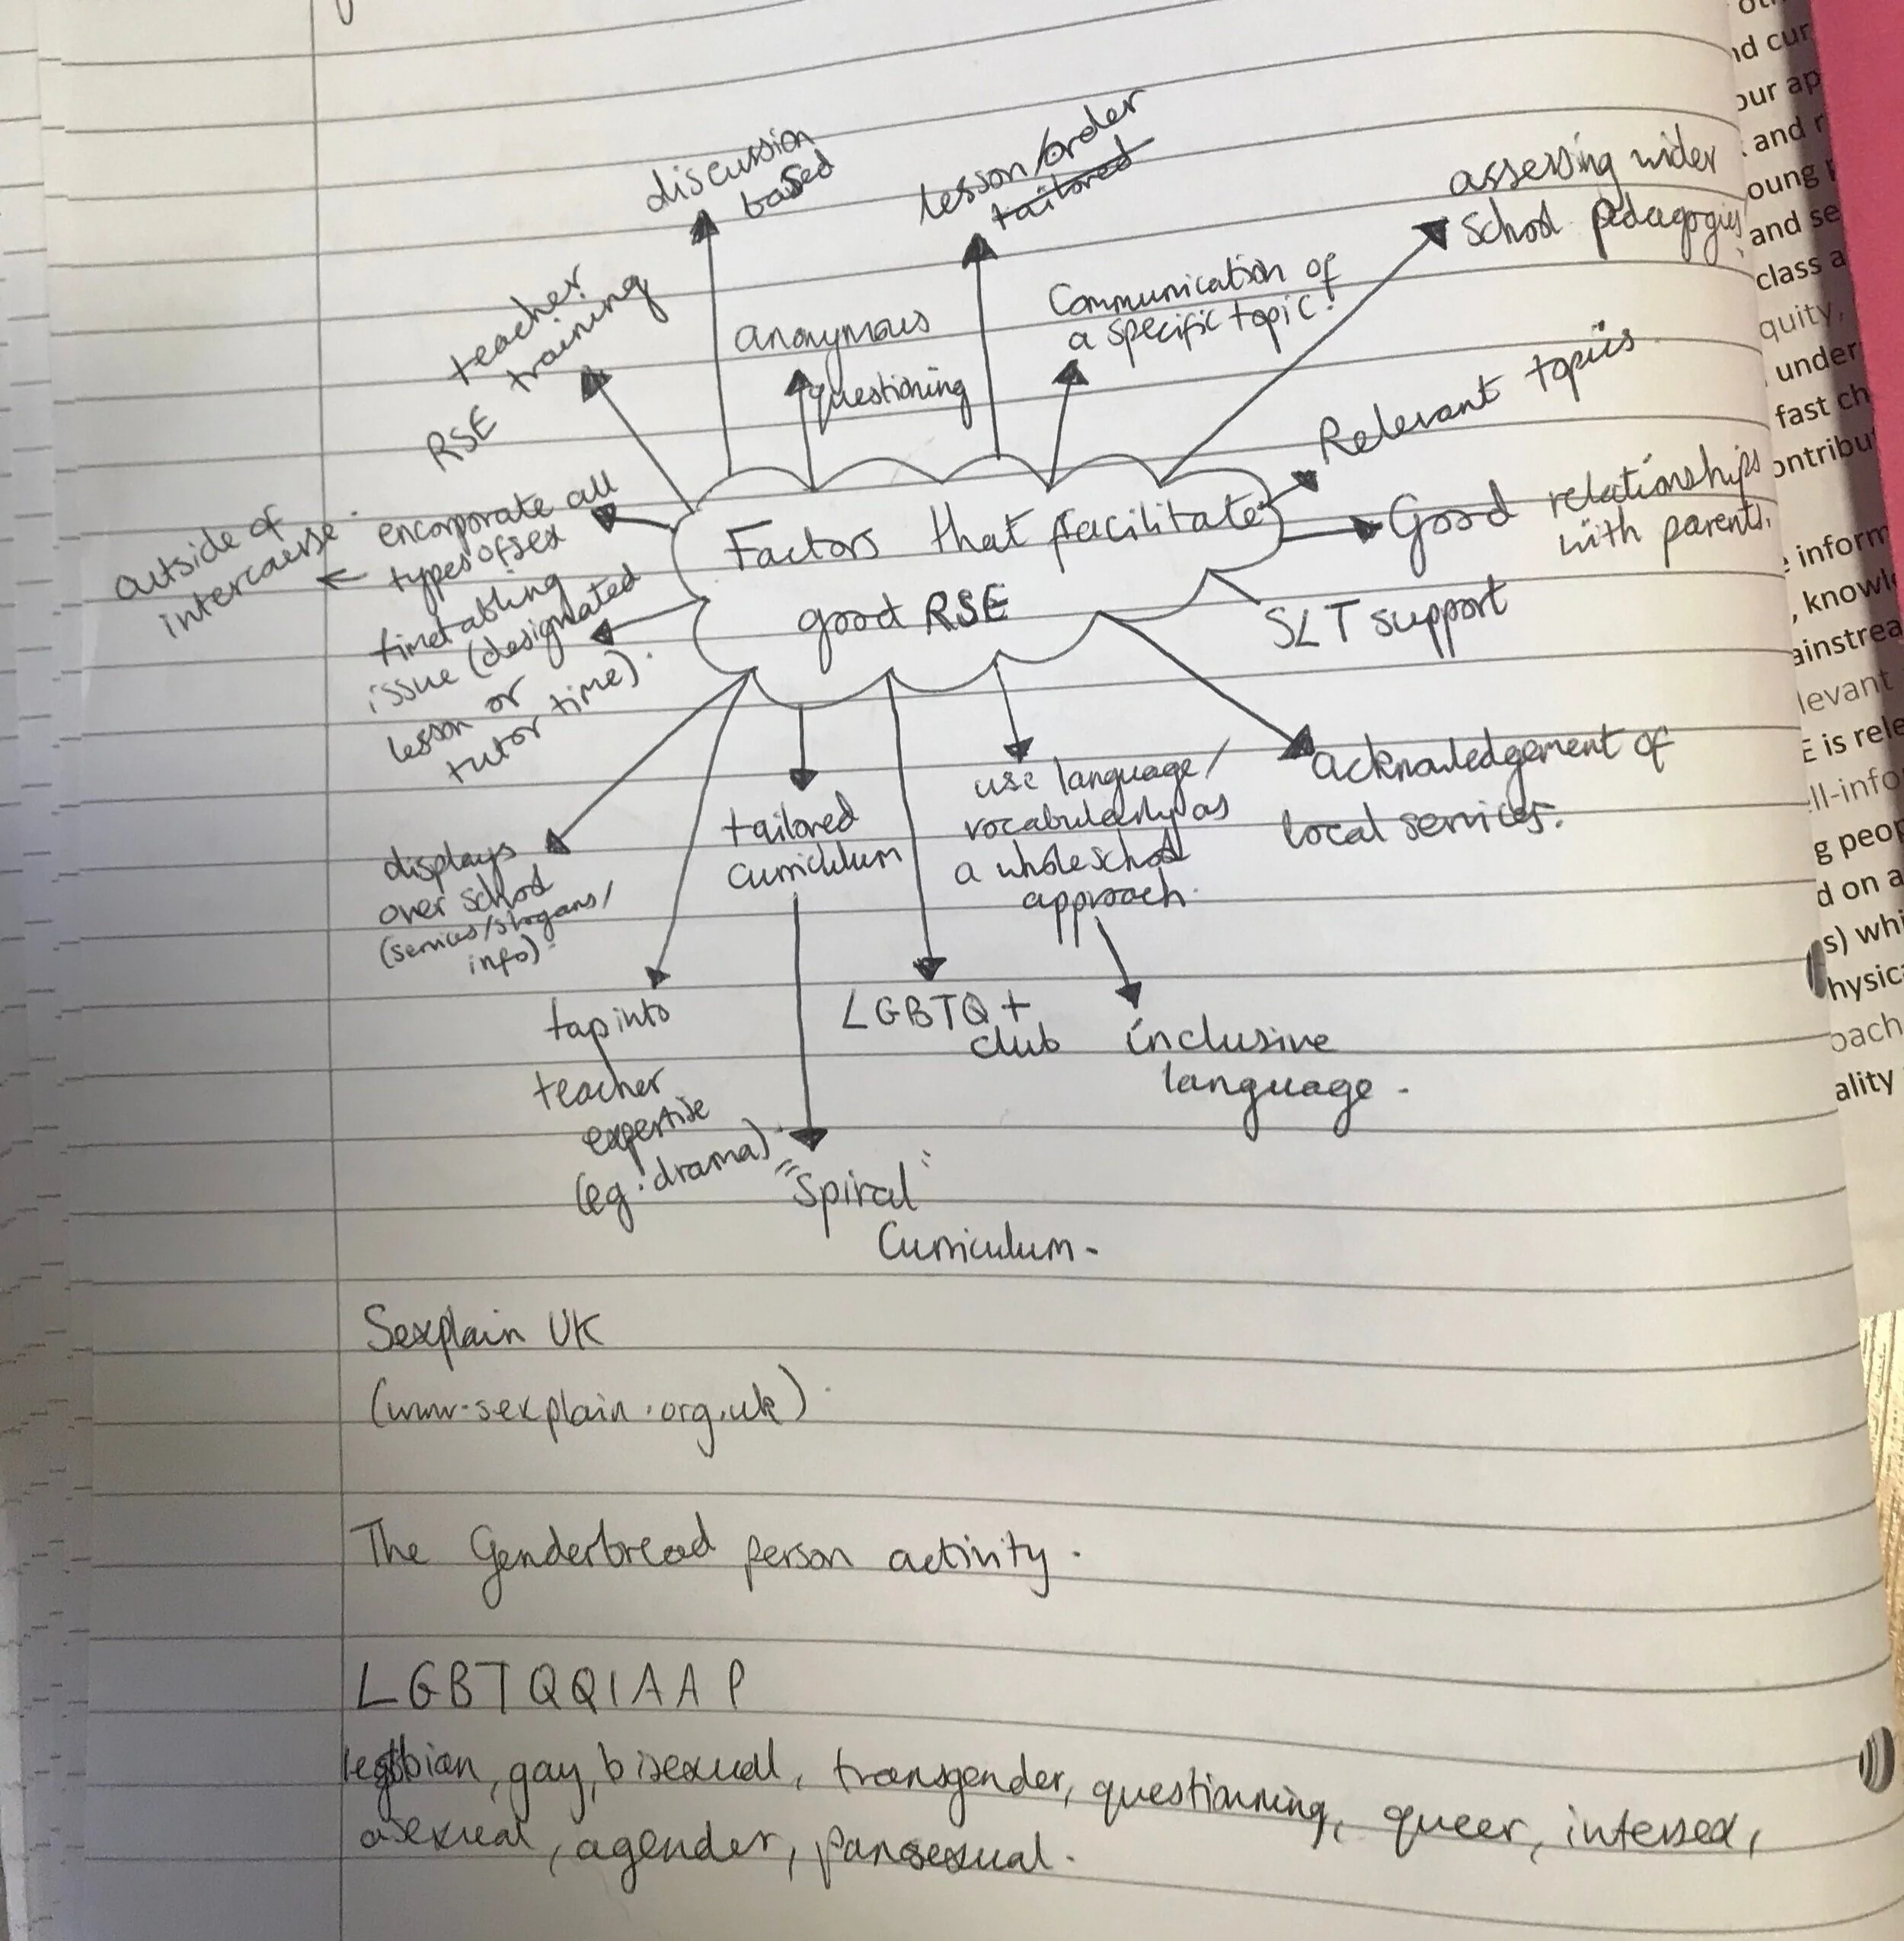 discussion
based
lesson/order
tailored
assessing wider
school pedagogies
teacher
training
RSE
anonymous
questioning
Communication of
a specific topic!
Relevant topics
Good relationships
with parents.
SLT support
acknowledgement of
local services.
Factors that facilitate
good RSE
encorporate all
types of sex
outside of
intercourse.
timetabling
issue (designated
lesson or
tutor time).
displays
over school
(services/slogans/
info).
tap into
teacher
expertise
(eg. drama)
tailored
curriculum
"Spiral"
Curriculum-
LGBTQ+
club
use language/
vocabularly as
a whole school
approach.
inclusive
language.
Sexplain UK
(www.sexplain.org.uk)
The Genderbread person activity.
LGBTQQIAAP
lesbian, gay, bisexual, transgender, questionning, queer, intersex,
asexual, agender, pansexual.
nd cur
our ap
and
oung
and se
class a
quity,
under
fast ch
ontribu
inform
, knowl
ainstrea
levant
E is rele
ll-info
g peop
d on a
s) whi
hysic
oach
ality